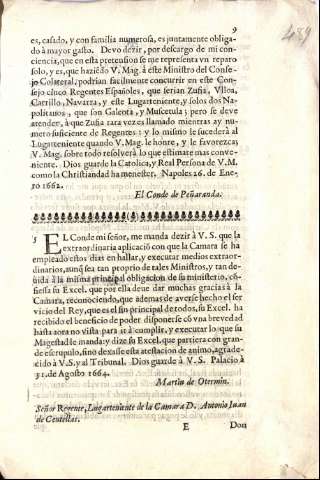 9
489
es, casado, y con familia numerosa, es juntamente obliga-
do à mayor gasto. Devo dezir, por descargo de mi con-
ciencia, que en esta pretension se me representa vn reparo
solo, y es, que haziẽdo V. Mag. à este Ministro del Conse-
jo Colateral, podrian facilmente concurrir en este Con-
sejo cinco Regentes Españoles, que serian Zufia, Vlloa,
Carrillo, Navarra, y este Lugarteniente, y solos dos Na-
politanos, que son Galeota, y Muscetula; pero se deve
atender, à que Zufia rara vez es llamado mientras ay nu-
mero suficiente de Regentes: y lo mismo le sucederà al
Lugarteniente quando V. Mag. le honre, y le favorezca;
V. Mag. sobre todo resolverà lo que estimare mas conve-
niente. Dios guarde la Catolica, y Real Persona de V. M.
como la Christiandad ha menester, Napoles 26. de Ene-
ro 1662.
El Conde de Peñaranda.
EL Conde mi señor, me manda dezir à V. S. que la
extraordinaria aplicaciõ con que la Camara se ha
empleado estos dias en hallar, y executar medios extraor-
dinarios, aunq̃ sea tan proprio de tales Ministros, y tan de-
vida à la misma principal obligacion de su ministerio, cõ-
fiessa su Excel. que por ella deve dar muchas gracias à la
Camara, reconociendo, que ademas de averse hecho el ser
vicio del Rey, que es el fin principal de todos, su Excel. ha
recibido el beneficio de poder disponerse cõ vna breve ad
hasta aora no vista para ir à cumplir, y executar lo que su
Magestad le manda: y dize su Excel. que partiera con gran-
de escrupulo, sino dexasse esta atestacion de animo, agrade-
cido à V. S. y al Tribunal. Dios guarde à V. S. Palacio à
31. de Agosto 1664.
Martin de Otermin.
Señor Regente, Lugarteniente de la Camara D. Antonio Juan
de Centellas.
E Don